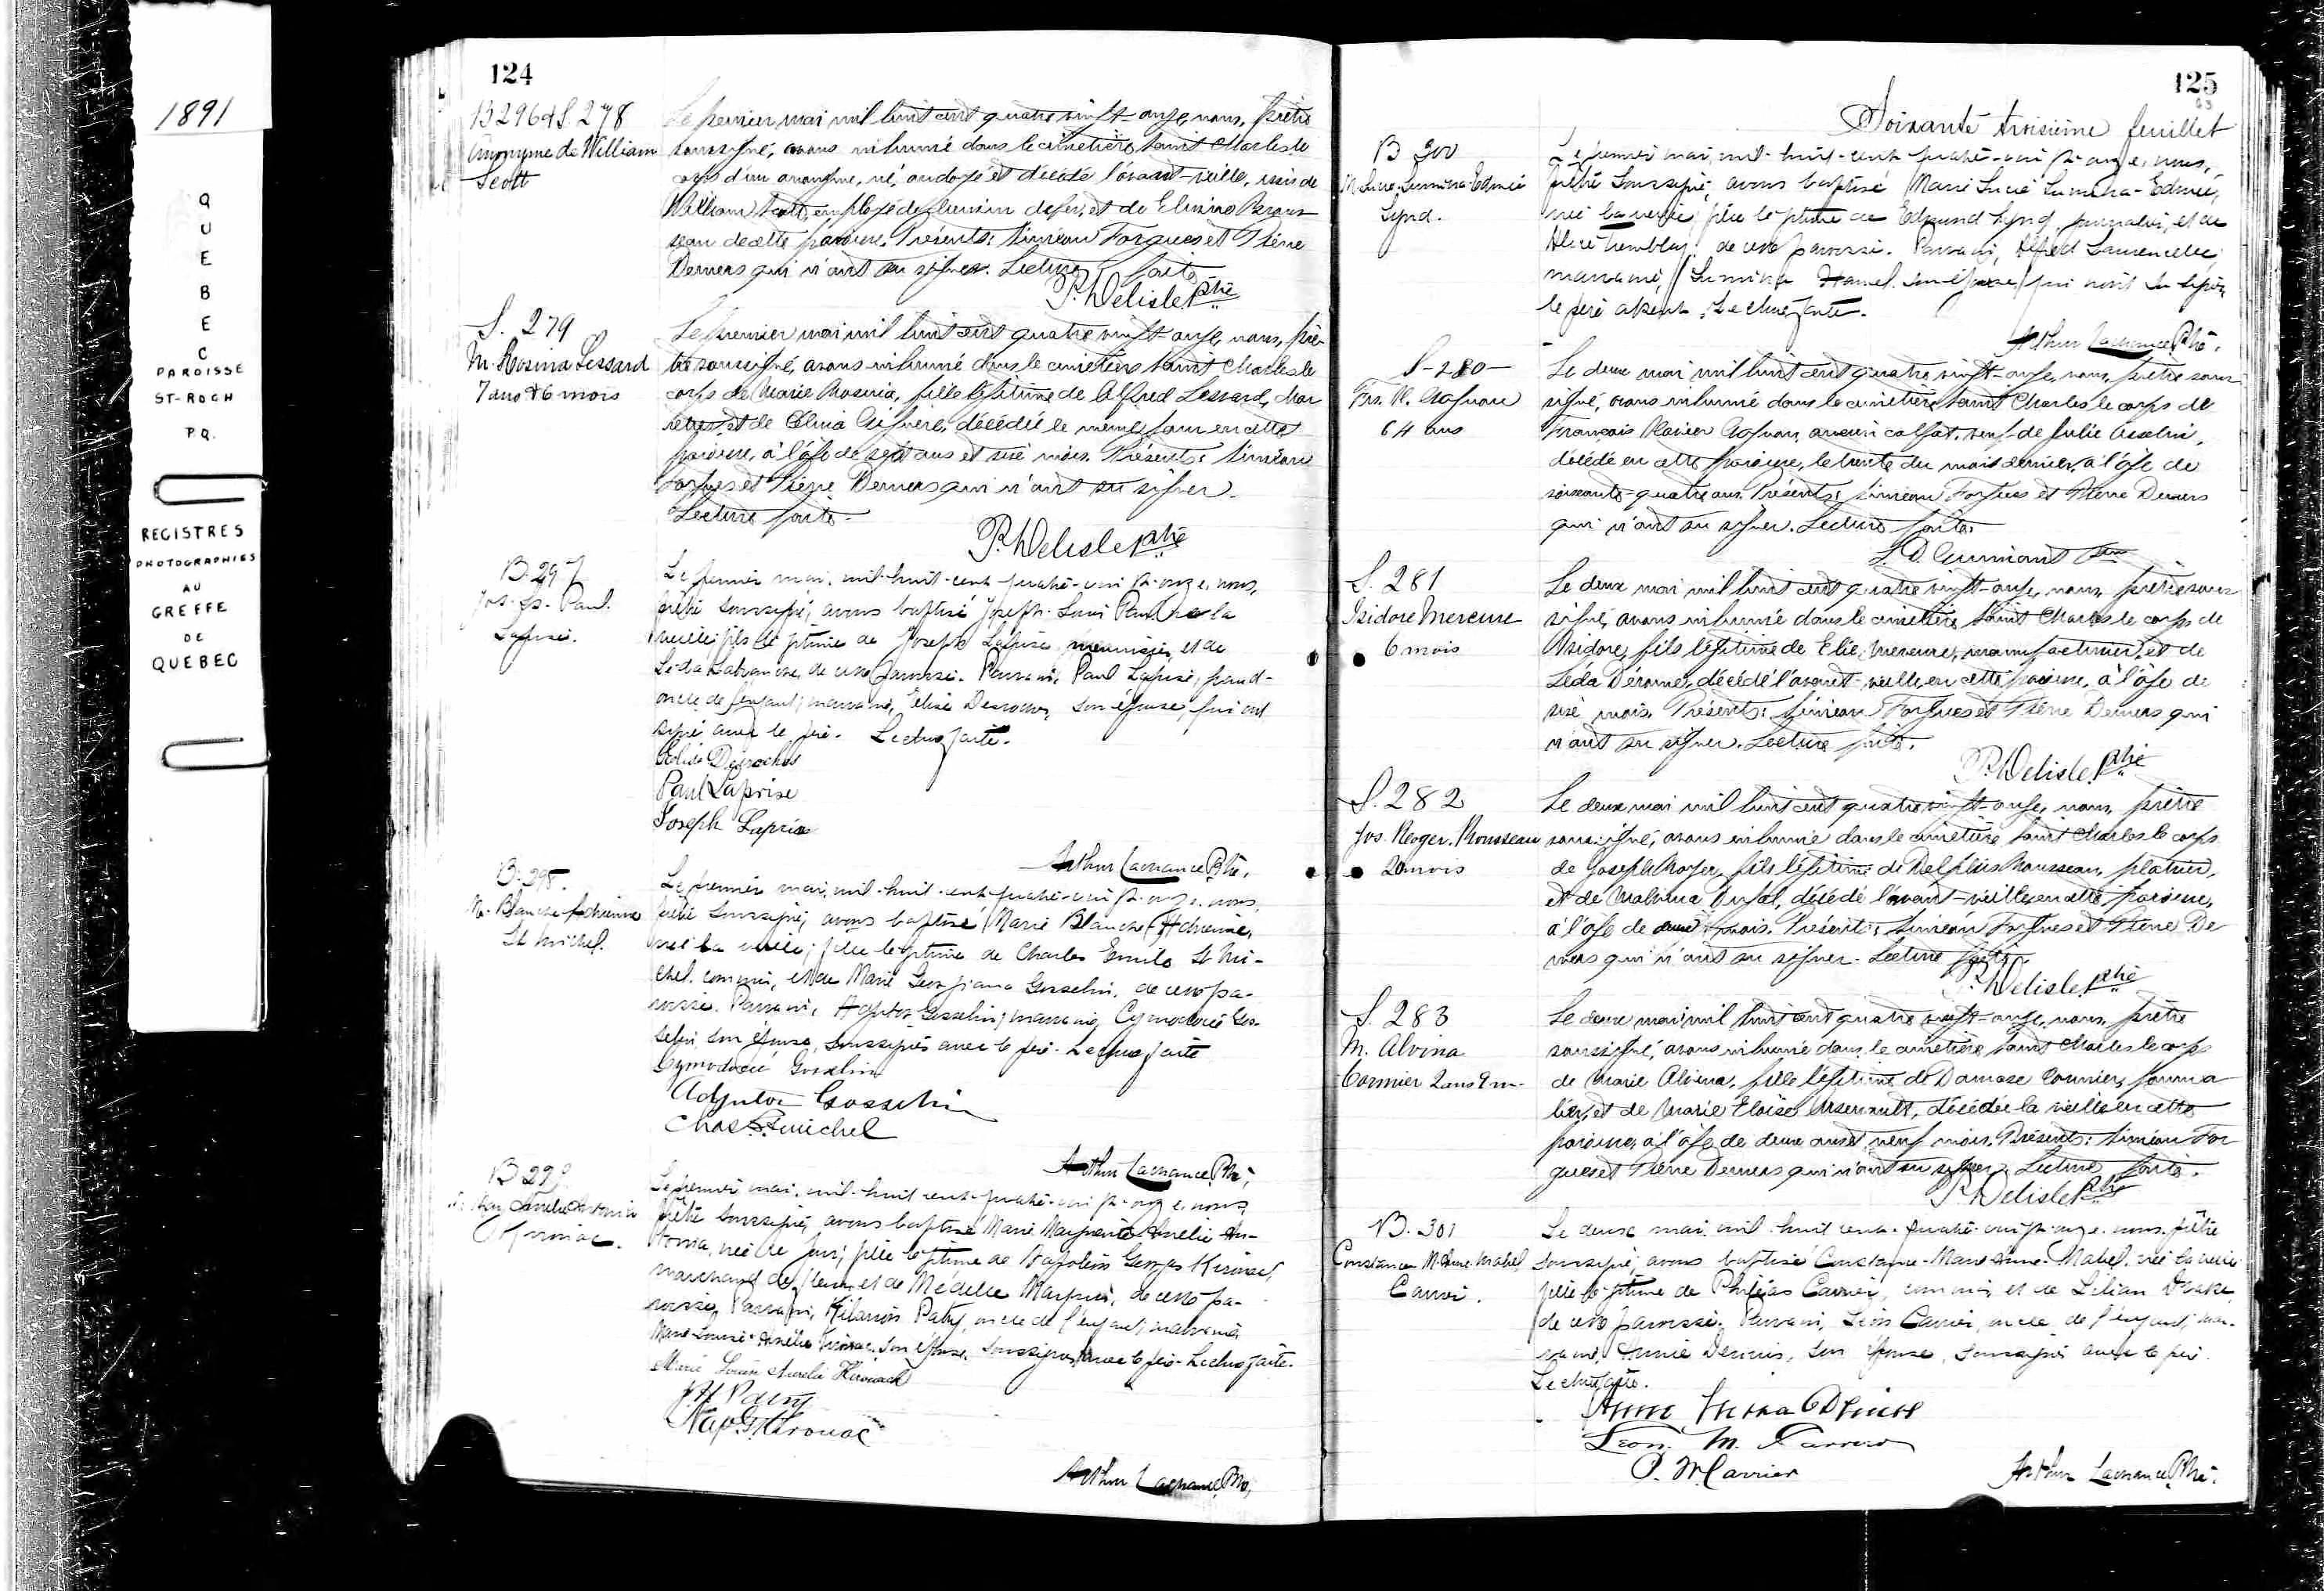 1891
QUEBEC
PAROISSE
ST-ROCH
P.Q.
REGISTRES
PHOTOGRAPHIES
AU
GREFFE
DE
QUEBEC
124
B296 & S. 278
anonyme de William
Scott
Le premier mai mil huit cent quatre vingt-onze, nous, prêtre
soussigné, avons inhumé dans le cimetière Saint Charles le
corps d'un anonyme, né, ondoyé et décédé l'avant-veille, issu de
William Scott, employé de chemin de fer, et de
de cette paroisse. Présents: Siméon Forgues et Pierre
Demers qui n'ont su signer. Lecture faite.
P. Delisle Ptre
S. 279
M. Rosina Lessard
7 ans & 6 mois
Le premier mai mil huit cent quatre vingt-onze, nous, prê-
tre soussigné, avons inhumé dans le cimetière Saint Charles le
corps de Marie Rosina, fille légitime de Alfred Lessard, char
retier, et de Célina Giguère, décédée le même jour en cette
paroisse, à l'âge de sept ans et six mois. Présents: Siméon
Forgues et Pierre Demers qui n'ont su signer.
Lecture faite.
P. Delisle Ptre
B. 297
Jos. Ls. Paul.
Laprise.
Le premier mai, mil-huit-cent-quatre-vingt-onze, nous,
prêtre soussigné, avons baptisé Joseph-Louis Paul né la
veille fils légitime de Joseph Laprise menuisier, et de
de cette paroisse. Parrain, Paul Laprise, grand-
oncle de l'enfant; marraine, Elise Desroches, son épouse, qui ont
signé avec le père. Lecture faite.
Elise Desroches
Paul Laprise
Joseph Laprise
Arthur Lachance Ptre.
B. 298.
M. Blanche Adrienne
St Michel.
Le premier mai, mil-huit-cent-quatre-vingt-onze, nous,
prêtre soussigné, avons baptisé Marie Blanche Adrienne,
née la veille; fille légitime de Charles Emile St Mi-
chel, commis, et de Marie Georgiana Gosselin, de cette pa-
roisse. Parrain, Adjutor Gosselin; marraine, Cymodocée Gos-
selin, son épouse, soussignés avec le père. Lecture faite
Cymodocée Gosselin
Adjutor Gosselin
Chas St Michel
Arthur Lachance Ptre.
B 299
Aurélie Antonia
Kirouac.
Le premier mai, mil-huit-cent-quatre-vingt-onze, nous,
prêtre soussigné, avons baptisé Marie Marguerite Aurélie An-
tonia, née ce jour; fille légitime de Napoléon Georges Kirouac,
marchand de fleur, et de Médelle de cette pa-
roisse, Parrain, oncle de l'enfant; marraine,
Marie Louise Aurélie Kirouac, son épouse, soussignés avec le père. Lecture faite.
Marie Louise Aurélie Kirouack
Nap. G. Kirouac
Arthur Lachance Ptre.
125
63
Soixante troisième feuillet
B 300
M. Lucie-Lumina Edmée
Lynd.
Le premier mai, mil-huit-cent-quatre-vingt-onze, nous,
prêtre soussigné, avons baptisé Marie Lucie Lumina-Edmée,
née la veille; fille légitime de Edmund Lynd, journalier, et de
Alice Tremblay de cette paroisse. Parrain, Alfred Laurencelle;
marraine, Lumina Hamel son épouse, qui n'ont su signer,
le père absent. Lecture faite.
Arthur Lachance Ptre.
S-280-
Frs. X. Gagnon
64 ans
Le deux mai mil huit cent quatre vingt-onze, nous, prêtre sous-
signé, avons inhumé dans le cimetière Saint Charles le corps de
François Xavier Gagnon, ancien calfat, veuf de Julie Asselin,
décédé en cette paroisse, le trente du mois dernier, à l'âge de
soixante-quatre ans. Présents: Siméon Forgues et Pierre Demers
qui n'ont su signer. Lecture faite.
S. 281
Isidore Mercure
6 mois
Le deux mai mil huit cent quatre vingt-onze, nous, prêtre sous-
signé, avons inhumé dans le cimetière Saint Charles le corps de
Isidore, fils légitime de Elie Mercure, manufacturier, et de
Léda Dérome, décédé l'avant-veille, en cette paroisse, à l'âge de
six mois. Présents: Siméon Forgues et Pierre Demers qui
n'ont su signer. Lecture faite.
P. Delisle Ptre
S. 282
Jos. Roger. Rousseau
20 mois
Le deux mai mil huit cent quatre vingt-onze, nous, prêtre
soussigné, avons inhumé dans le cimetière Saint Charles le corps
de Joseph Roger, fils légitime de Delphis Rousseau, platrier,
et de Malvina décédé l'avant-veille en cette paroisse,
à l'âge de mois. Présents: Siméon Forgues et Pierre De
mers qui n'ont su signer. Lecture faite.
P. Delisle Ptre
S. 283
M. Alvina
Cormier 2 ans 9 m.
Le deux mai mil huit cent quatre vingt-onze, nous, prêtre
soussigné, avons inhumé dans le cimetière Saint Charles le corps
de Marie Alvina, fille légitime de Damase Cormier, journa
lier, et de Marie Eloïse Arsenault, décédée la veille en cette
paroisse, à l'âge de deux ans et neuf mois. Présents: Siméon For
gues et Pierre Demers qui n'ont su signer. Lecture faite.
P. Delisle Ptre
B. 301
Constance M. Anne. Mabel
Carrier.
Le deux mai, mil-huit-cent-quatre-vingt-onze, nous, prêtre
soussigné, avons baptisé Constance-Marie Anne-Mabel, née la veille
fille légitime de Philéas Carrier, commis, et de Lilian
de cette paroisse. Parrain, Léon Carrier, oncle de l'enfant; mar-
raine, Annie son épouse, soussignés avec le père.
Lecture faite.
Leon. M. Carrier
P. M. Carrier
Arthur Lachance Ptre.